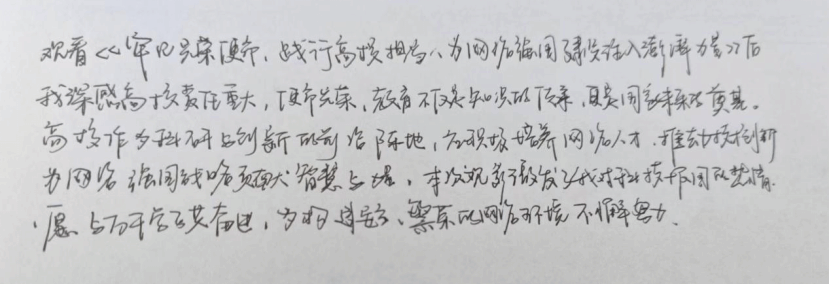 观看《牢记光荣使命,践行高校担当,为网络强国建设注入澎湃力量》后
我深感高校责任重大,使命光荣,教育不仅是知识的传承,更是国家未来的奠基。
高校作为科研与创新的前沿阵地,应积极培养网络人才,推动技术创新
为网络强国战略贡献智慧与力量,本次观影激发了我对科技报国的热情.
愿与万千学子共奋进,为构建安全、繁荣的网络环境不懈努力.